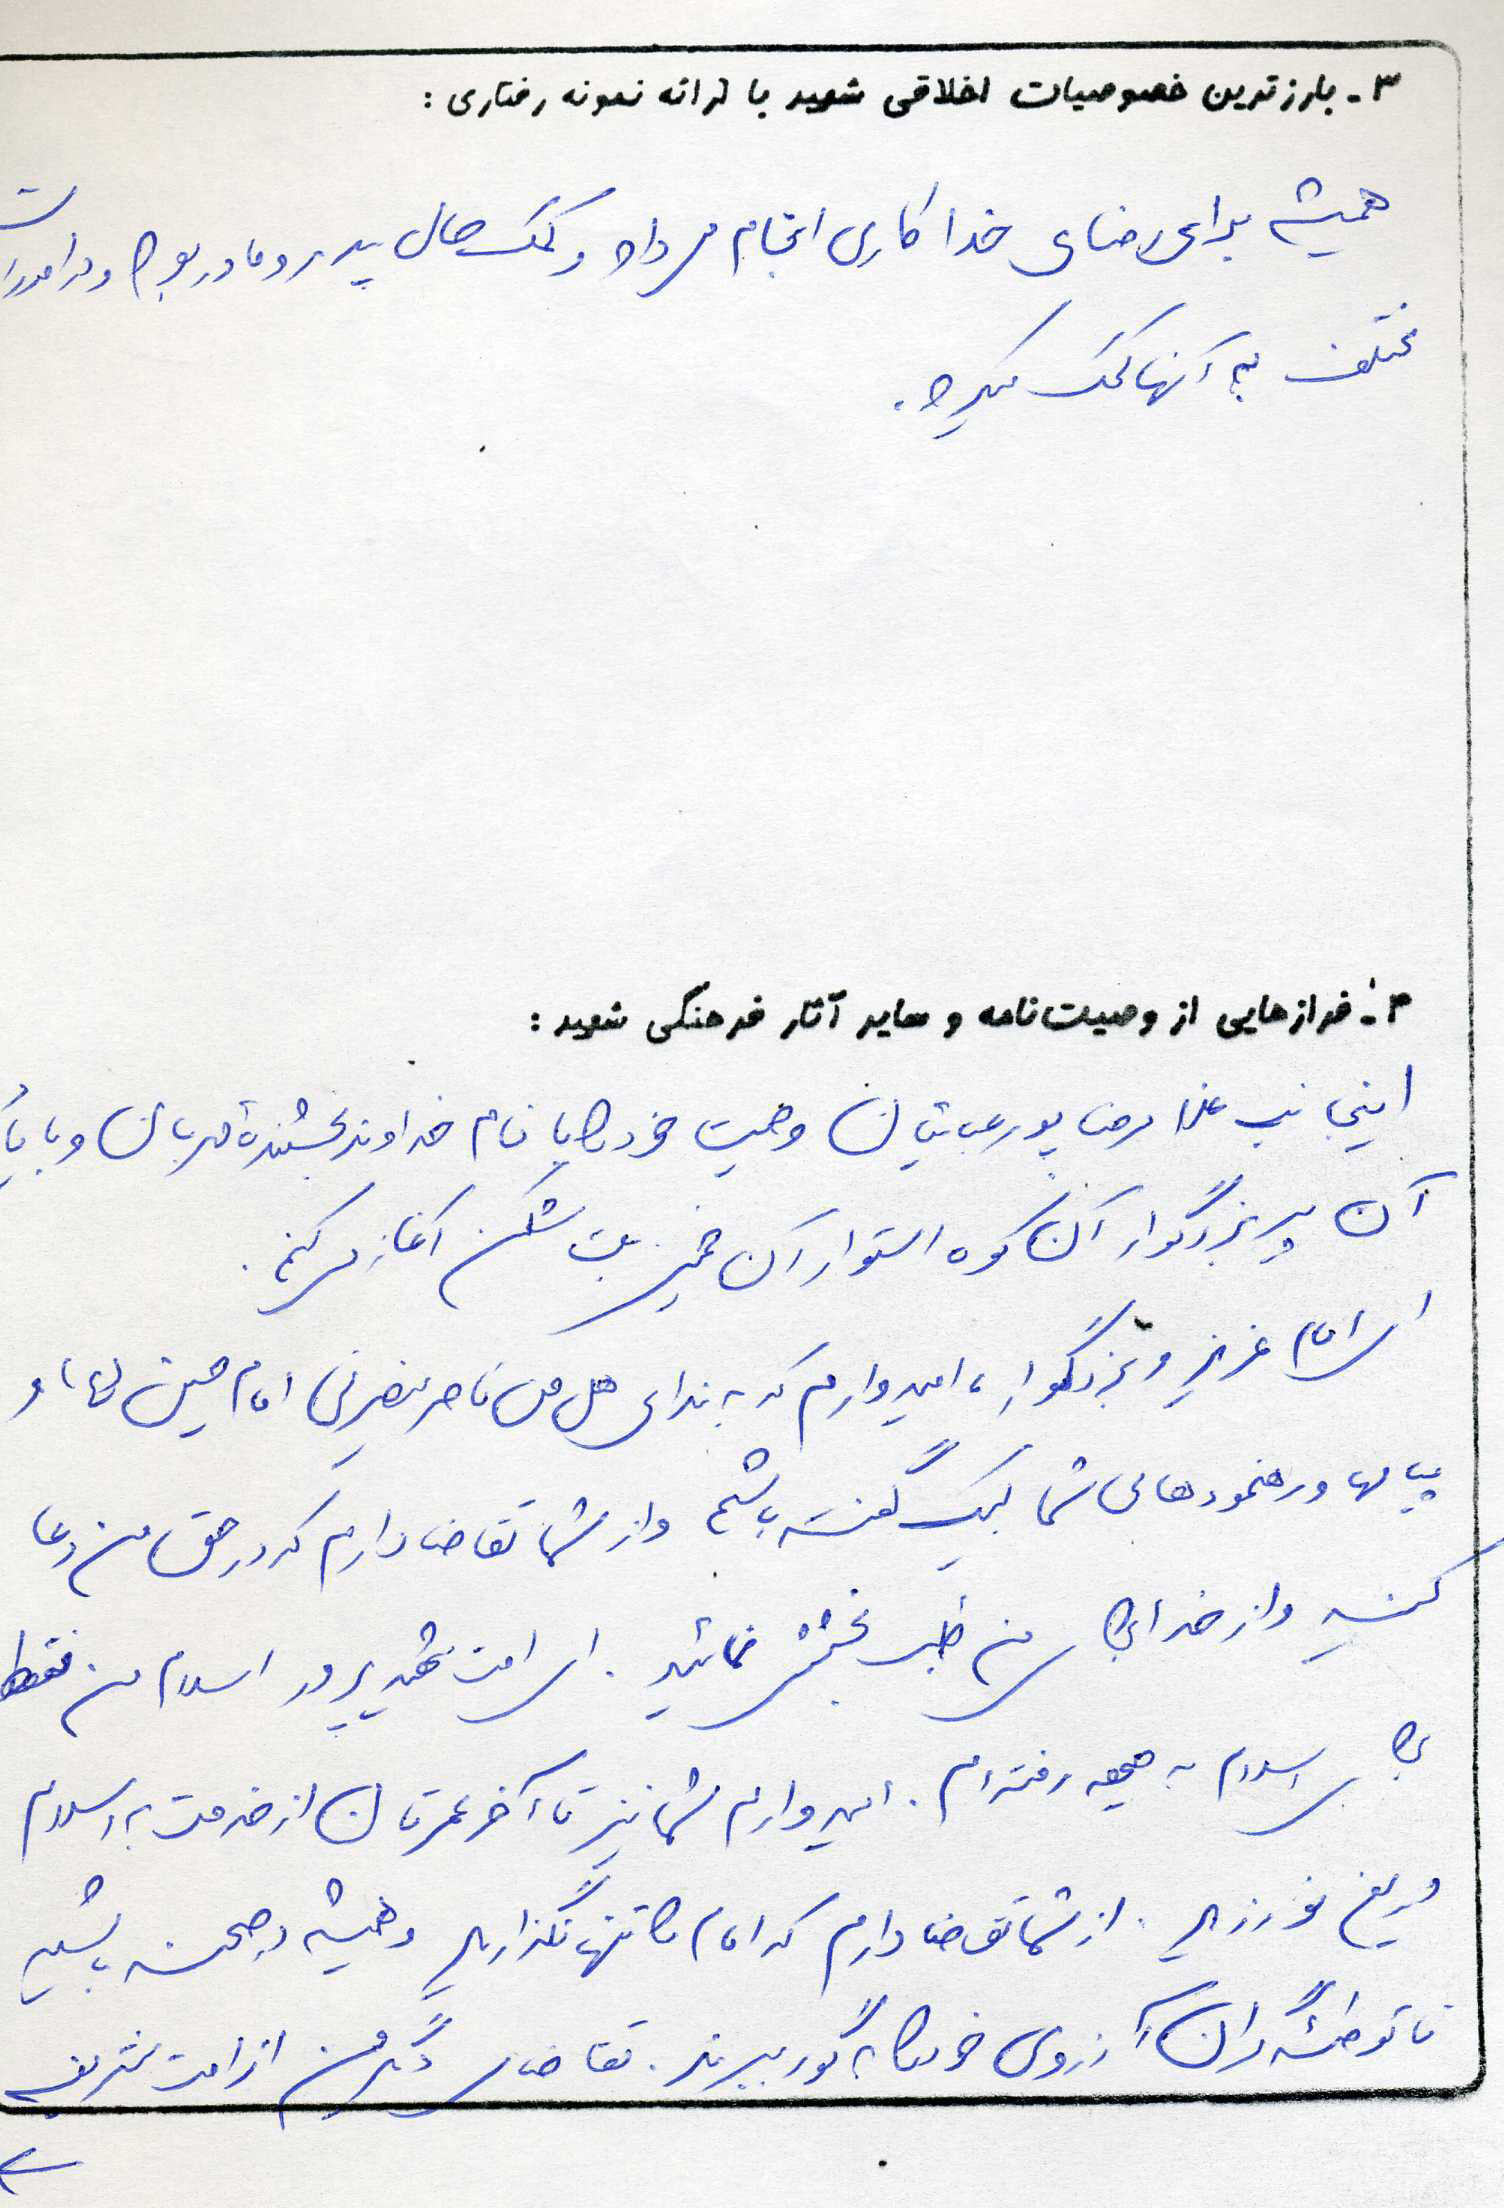 ۳ـ بارزترین خصوصیات اخلاقی شهید با ارائه نمونه رفتاری :
همیشه برای رضای خدا کاری انجام می داد و کمک حال پدر و مادر بود و در امورات
مختلف به آنها کمک میکرد .
۴ـ فرازهایی از وصیت‌نامه و سایر آثار فرهنگی شهید :
اینجانب غلامرضا پور عباتیان وصیت خود را با نام خداوند بخشنده مهربان و با یاد
آن پیر بزرگوار آن کوه استوار آن خمینی بت شکن آغاز می کنم .
ای امام عزیز و بزرگوار ، امیدوارم که به ندای هل من ناصر ینصرنی امام حسین (ع) و
پیامها و رهنمودهای شما لبیک گفته باشم و از شما تقاضا دارم که در حق من دعا
کنید و از خدا برای من طلب بخشش نمائید . ای امت شهید پرور اسلام من فقط
برای اسلام به جبهه رفته ام . امیدوارم شما نیز تا آخر عمرتان از خدمت به اسلام
دریغ نورزید . از شما تقاضا دارم که امام را تنها نگذارید و همیشه در صحنه باشید
تا توطئه گران آرزوی خود را به گور ببرند . تقاضای دیگر من از امت شریف